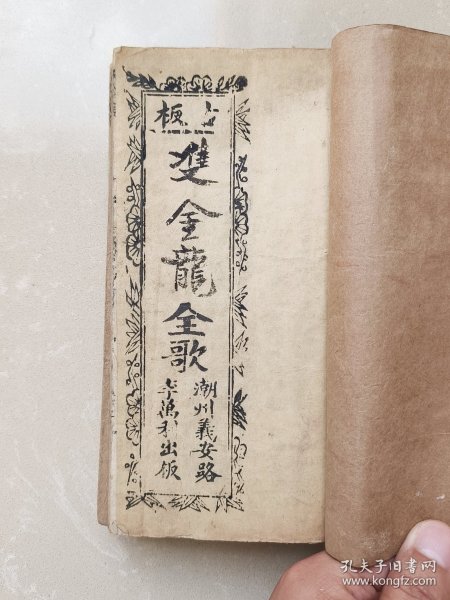 古板
雙金龍全歌
潮州義安路
李萬利出版
孔夫子旧书网
www.kongfz.com